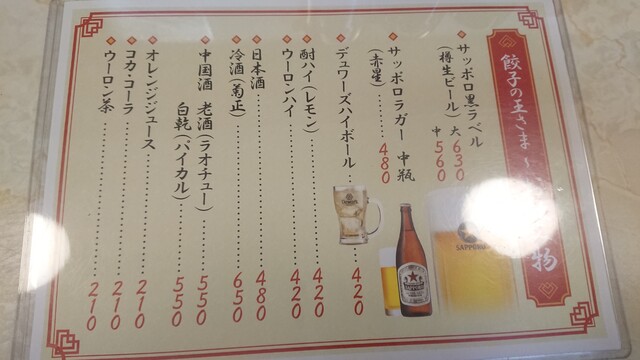 餃子の王さま～
物
サッポロ黒ラベル
（樽生ビール）大630
中560
サッポロラガー 中瓶
（赤星）480
デュワーズハイボール 420
酎ハイ（レモン）420
ウーロンハイ 420
日本酒 480
冷酒（菊正）650
中国酒 老酒（ラオチュー）550
白乾（パイカル）550
オレンジジュース 210
コカ・コーラ 210
ウーロン茶 210
SAPPORO